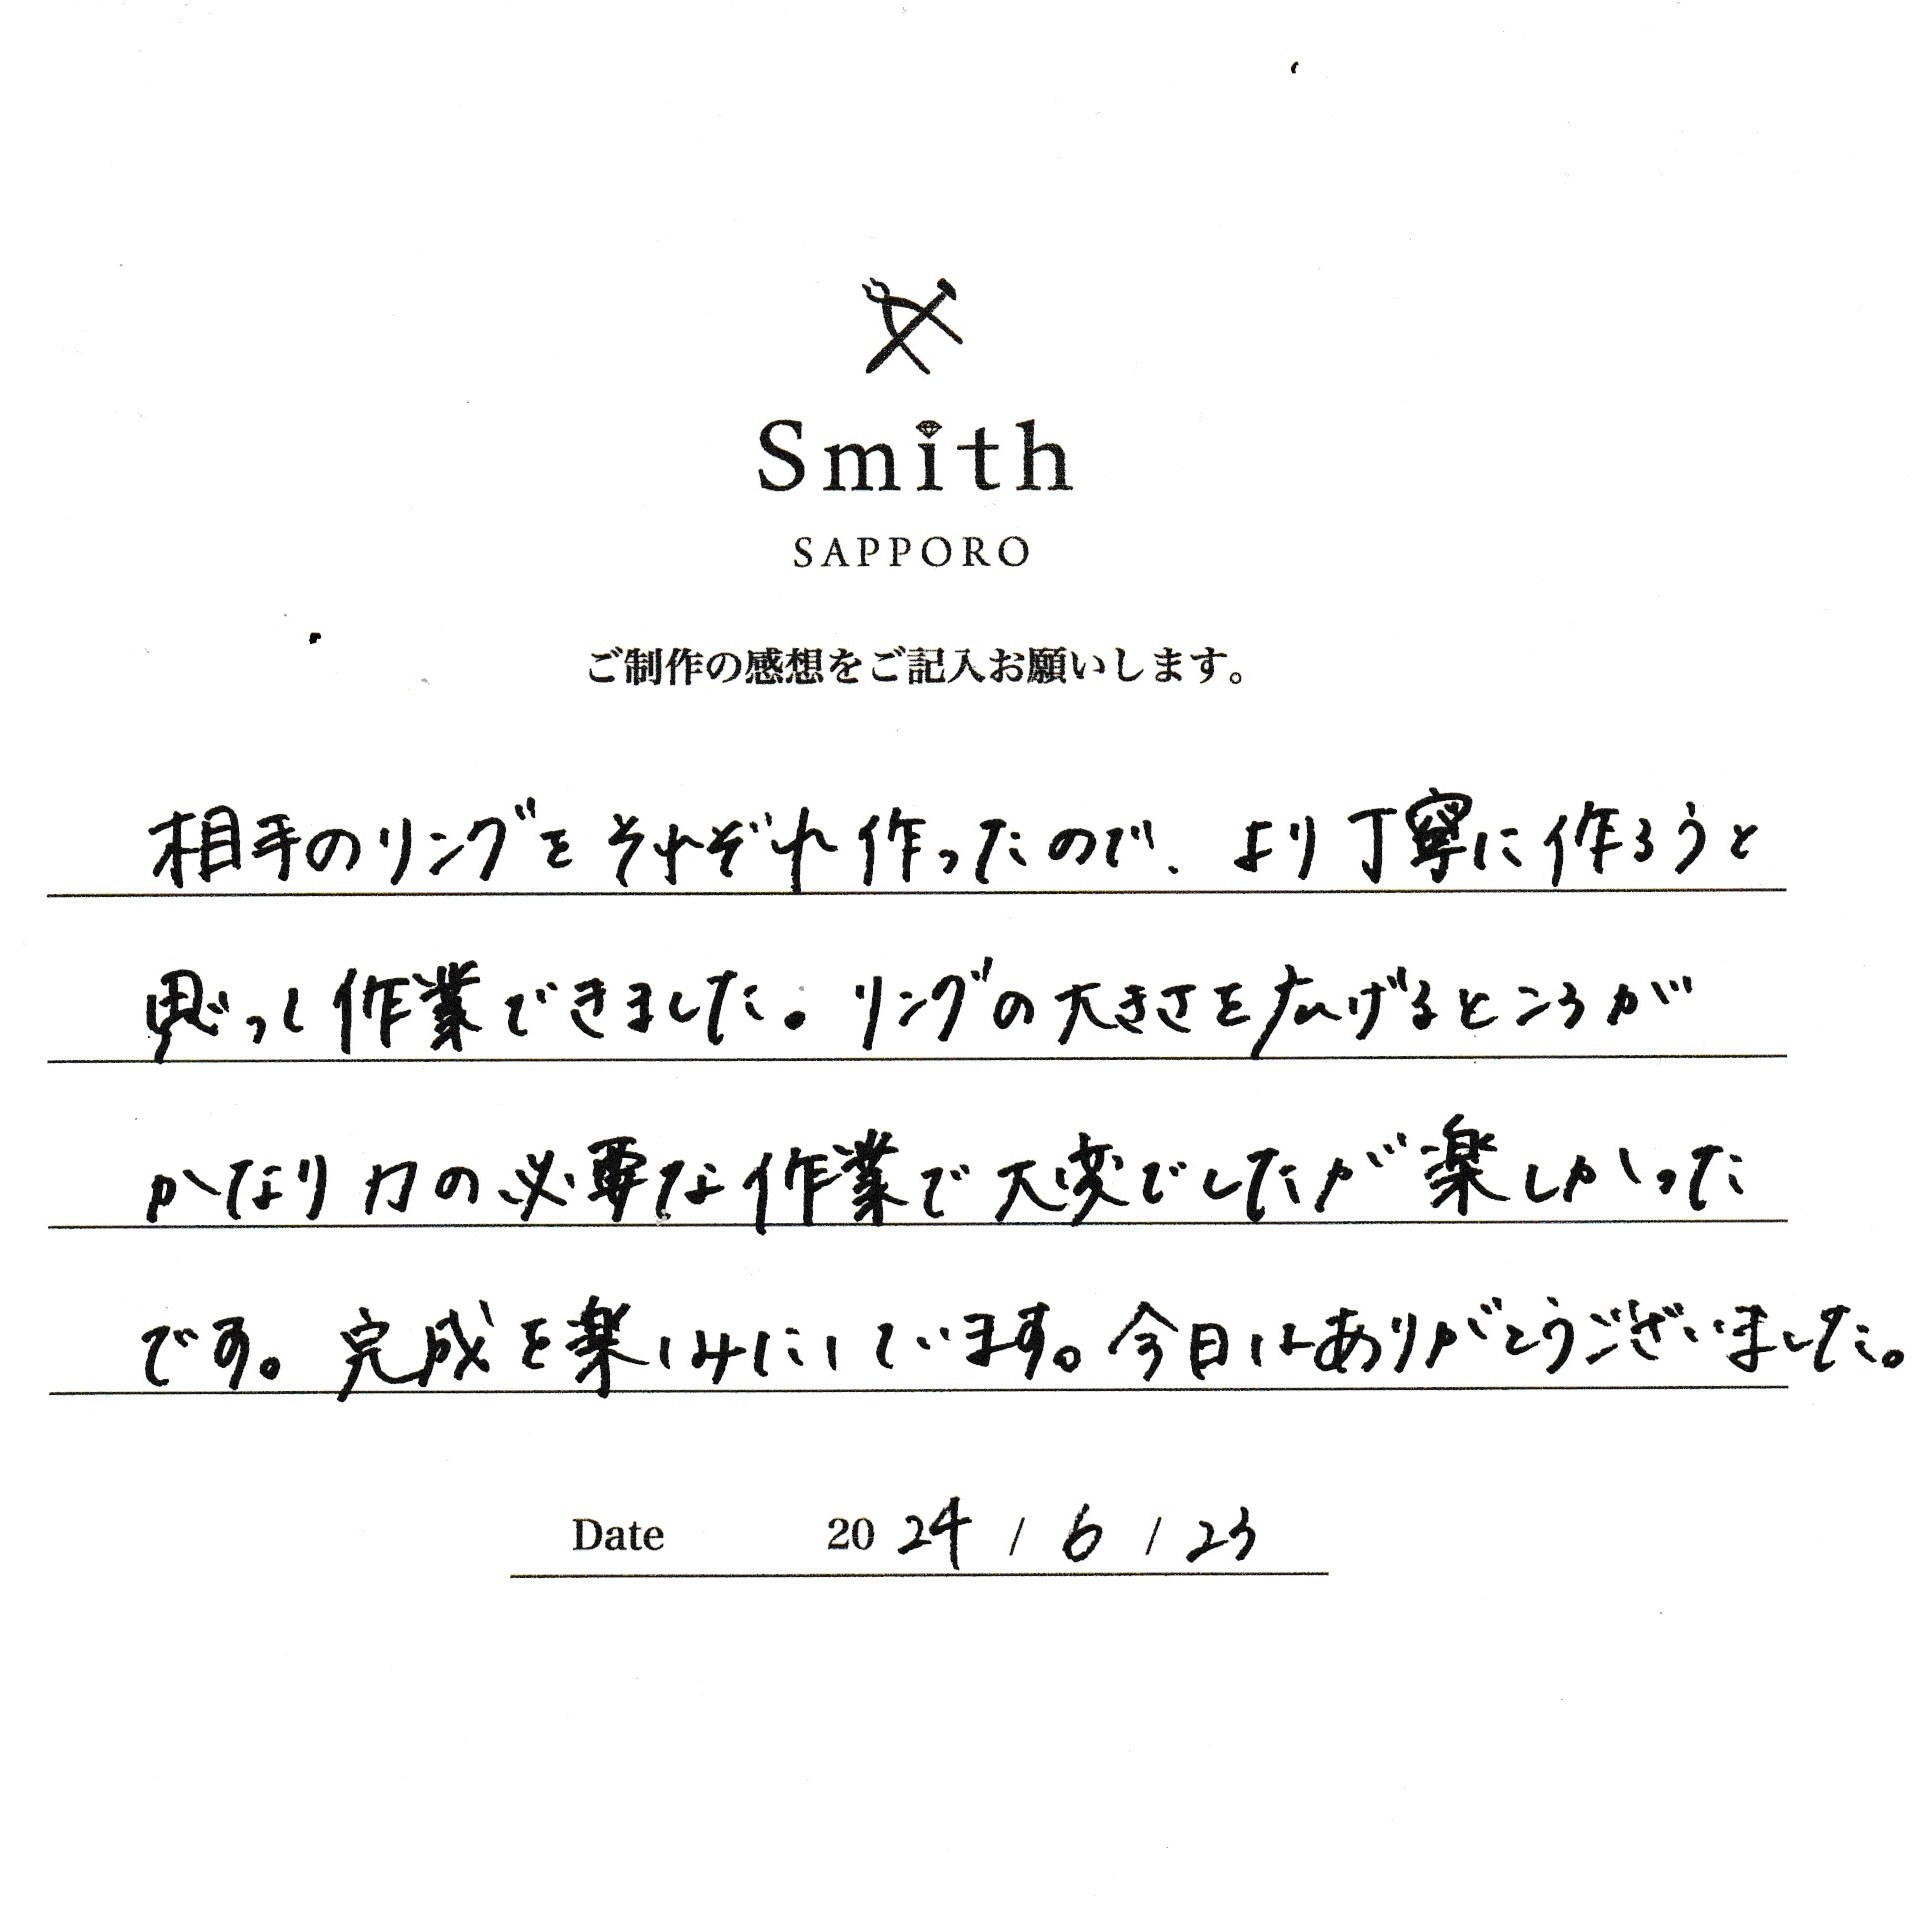 Smith
SAPPORO
ご制作の感想をご記入お願いします。
相手のリングをそれぞれ作ったので、より丁寧に作ろうと
思って作業できました。リングの大きさを広げるところが
かなり力の必要な作業で大変でしたが楽しかった
です。完成を楽しみにしています。今日はありがとうございました。
Date 2024 / 6 / 23